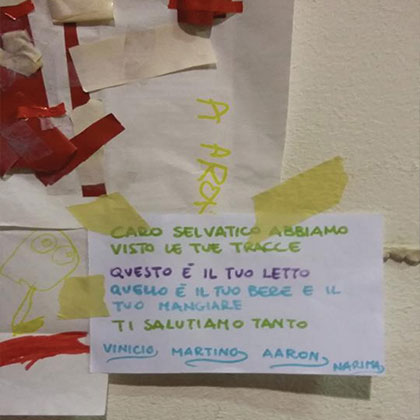 A ARON
CARO SELVATICO ABBIAMO
VISTO LE TUE TRACCE
QUESTO È IL TUO LETTO
QUELLO È IL TUO BERE E IL
TUO MANGIARE
TI SALUTIAMO TANTO
VINICIO MARTINO AARON NARIMA